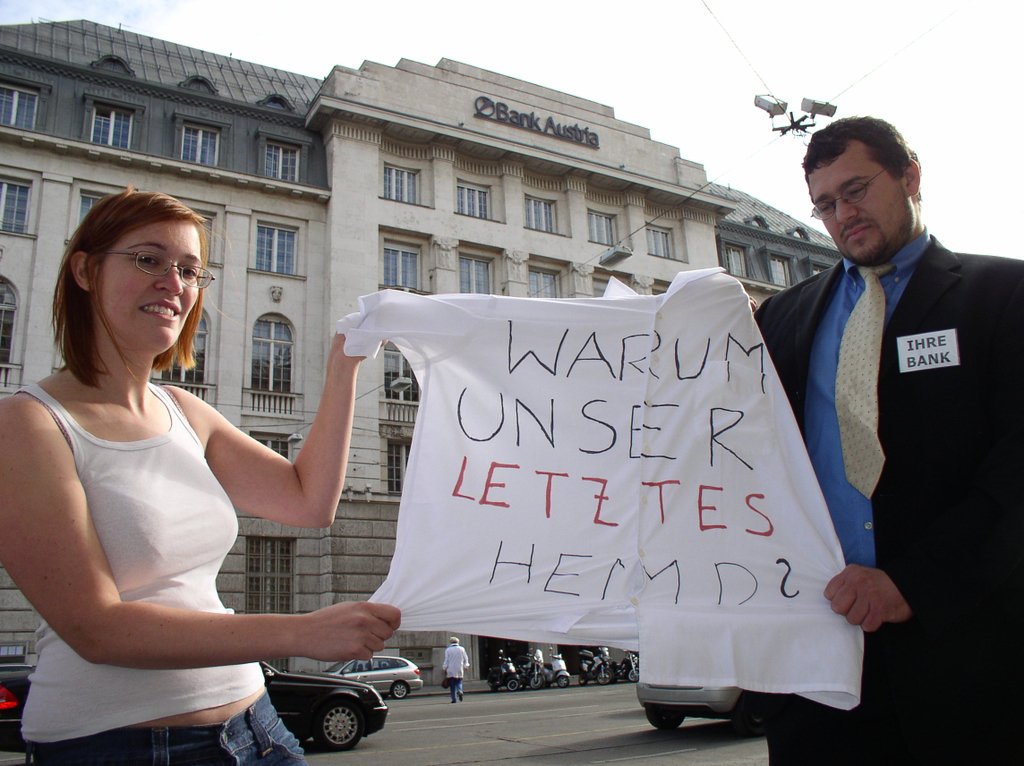 Bank Austria
IHRE
BANK
WARUM
UNSER
LETZTES
HEMD?